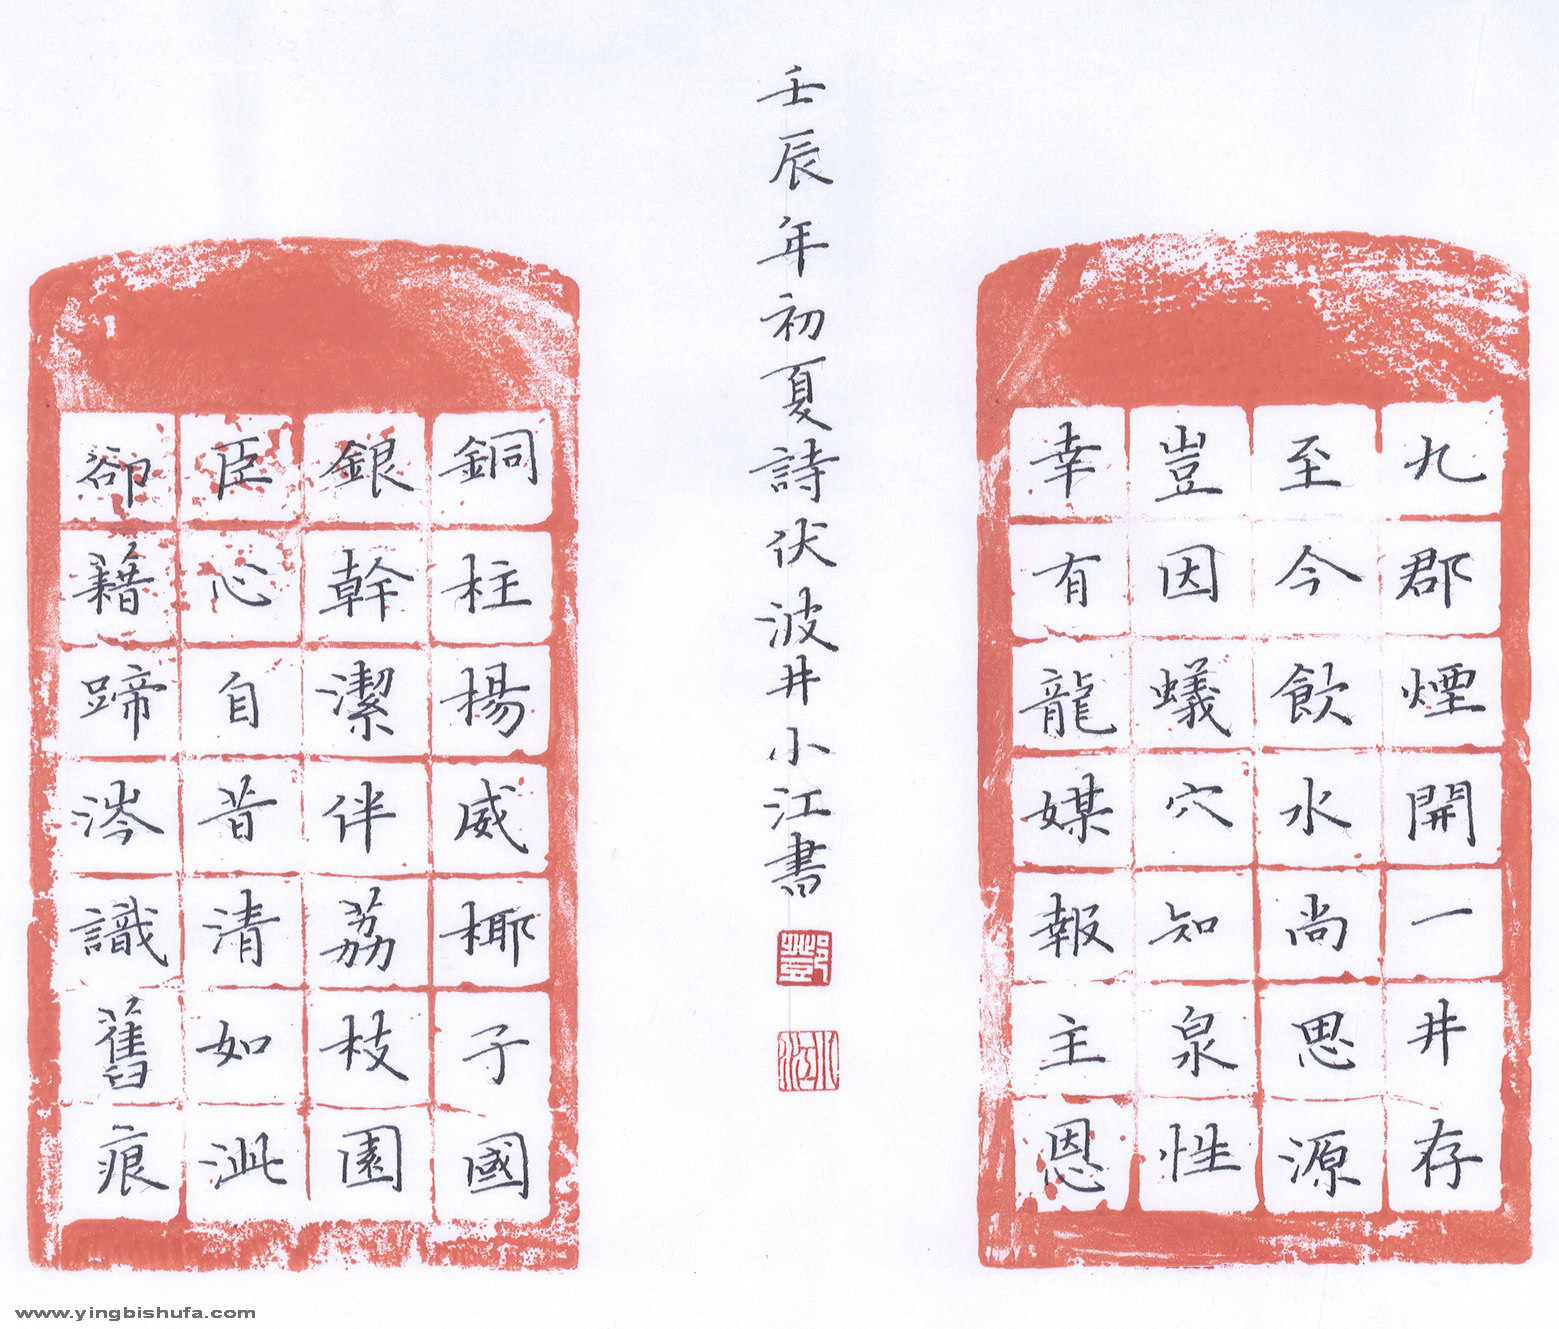 九郡煙開一井存
至今飲水尚思源
豈因蟻穴知泉性
幸有龍媒報主恩
銅柱楊威椰子國
銀幹潔伴荔枝園
臣心自昔清如泚
卻藉蹄涔識舊痕
壬辰年初夏詩伏波井小江書
鄧
小江
www.yingbishufa.com